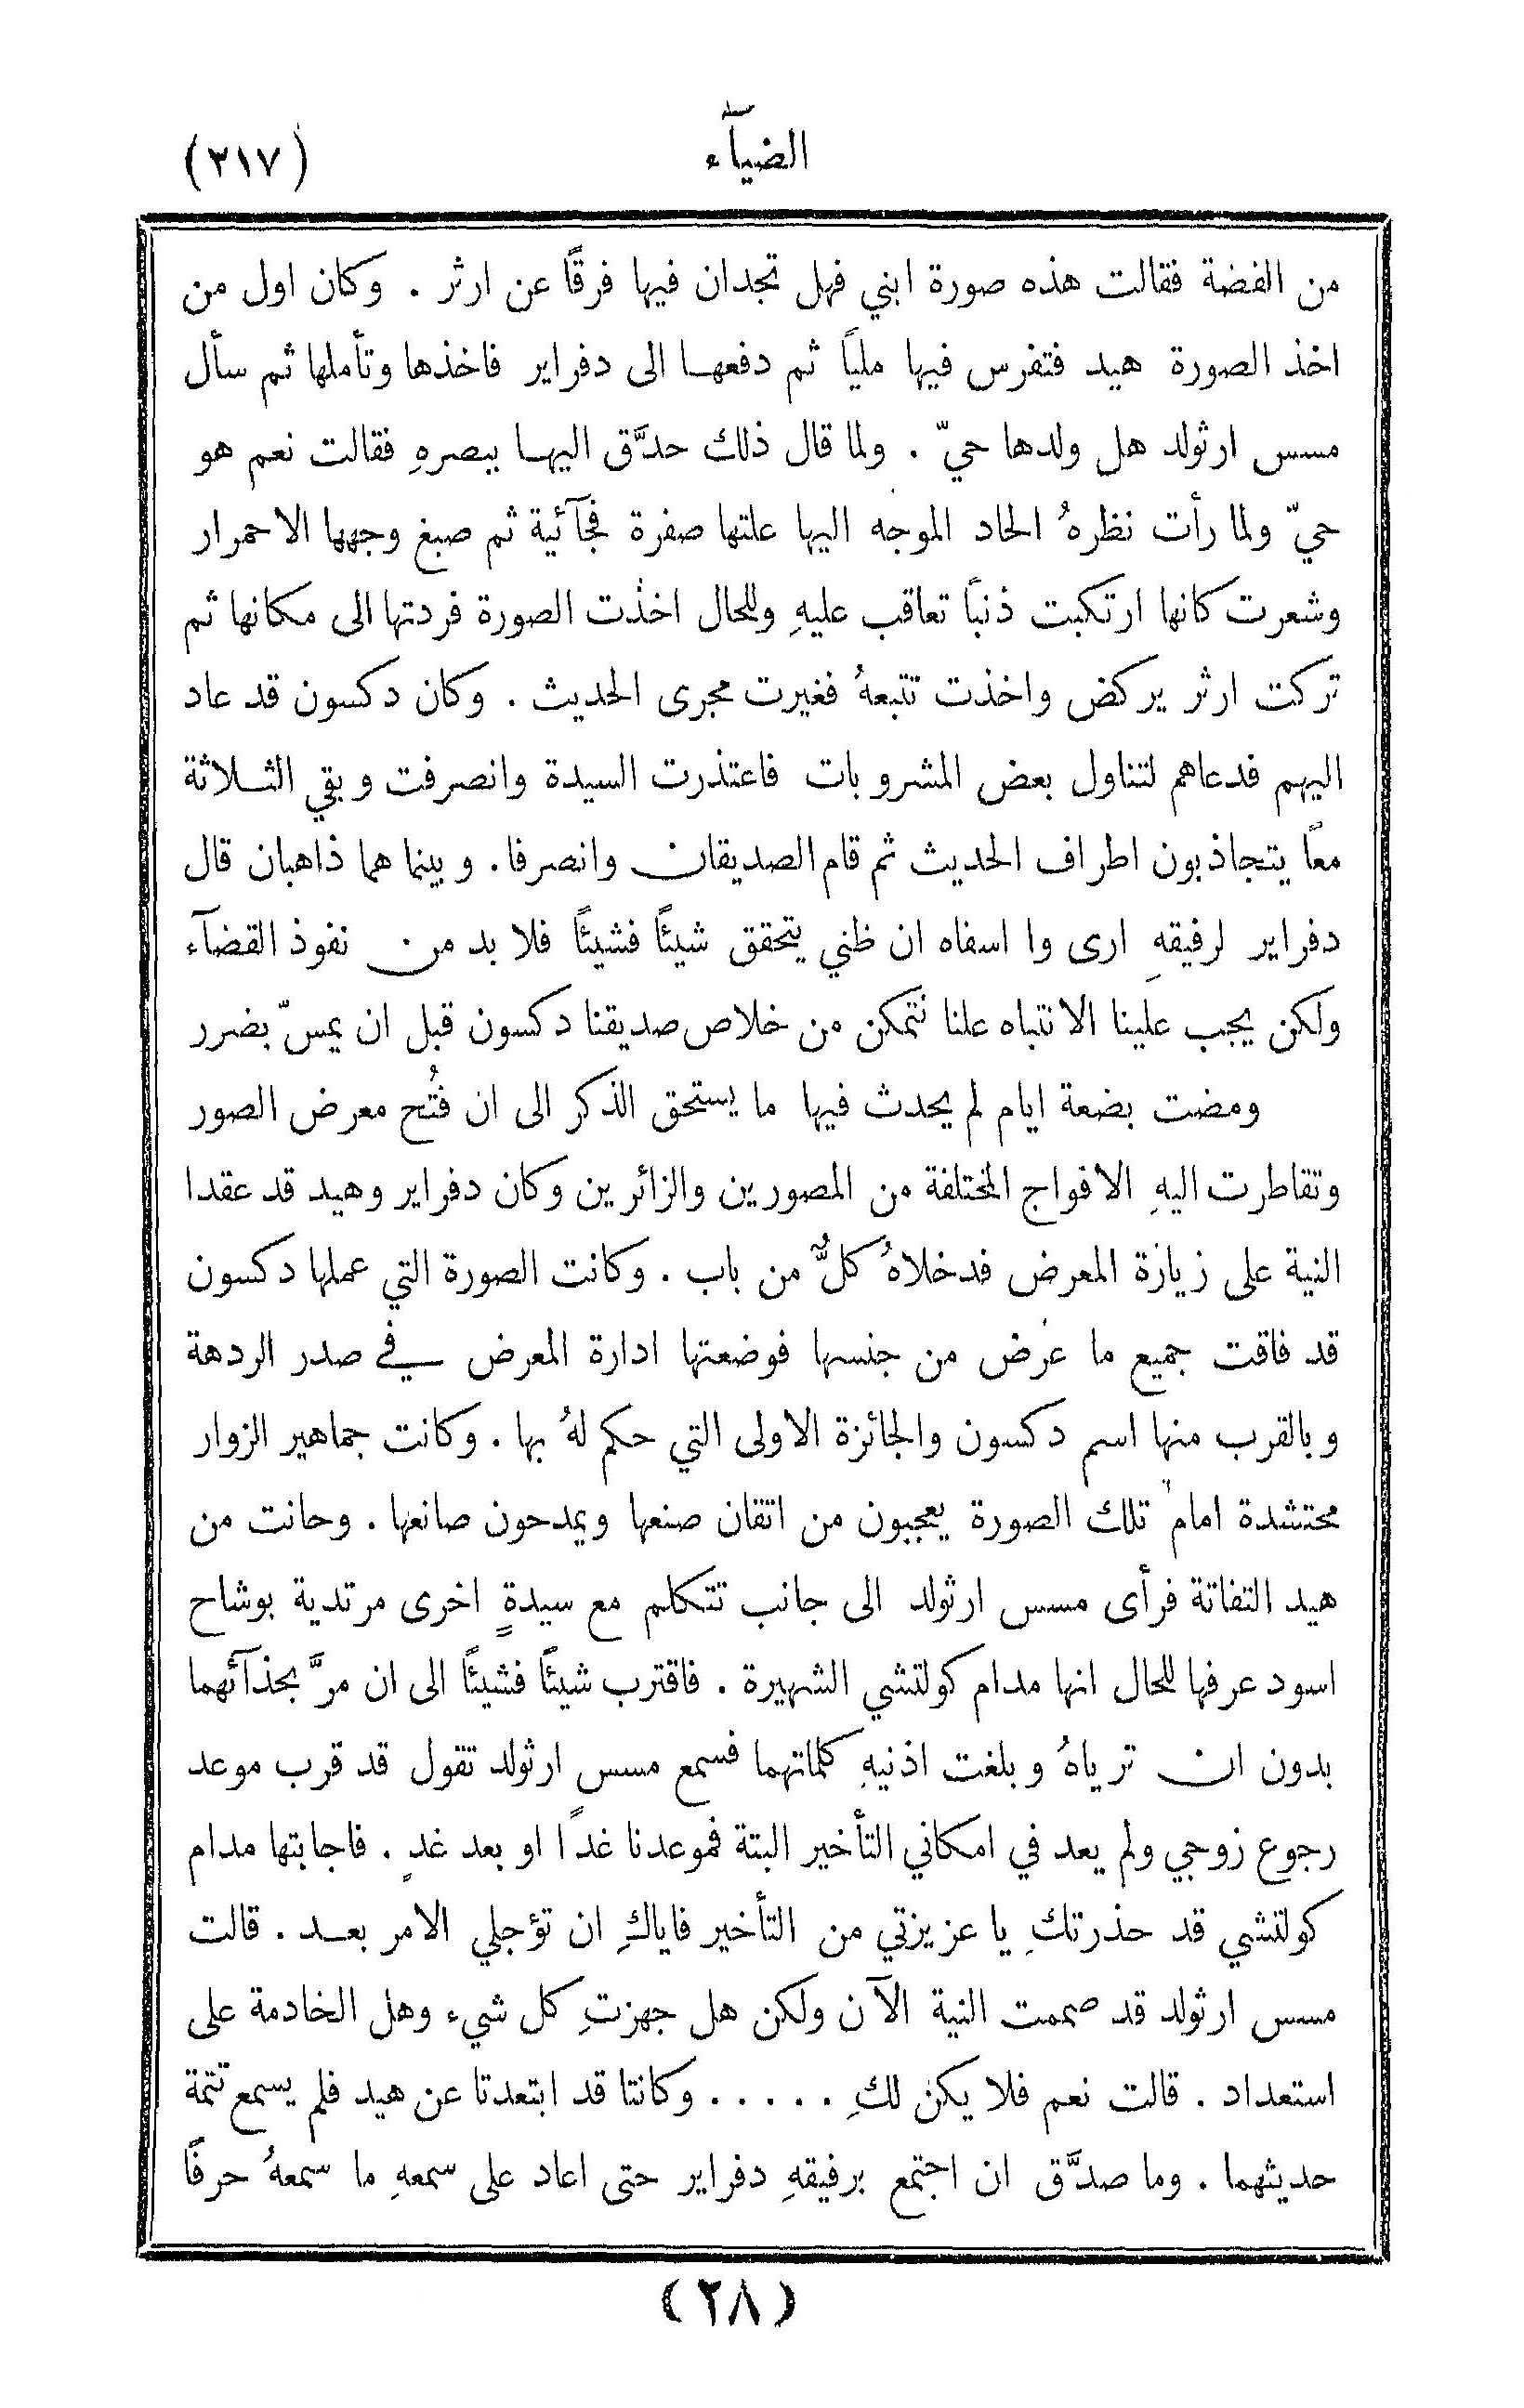 الضيآء
(٣١٧)
من الفضة فقالت هذه صورة ابني فهل تجدان فيها فرقًا عن ارثر . وكان اول من
اخذ الصورة هيد فتفرس فيها مليًا ثم دفعها الى دفراير فاخذها وتأملها ثم سأل
مسس ارثولد هل ولدها حيّ . ولما قال ذلك حدَّق اليها ببصرهِ فقالت نعم هو
حيّ ولما رأت نظرهُ الحاد الموجه اليها علتها صفرة فجآئية ثم صبغ وجهها الاحمرار
وشعرت كانها ارتكبت ذنبًا تعاقب عليهِ وللحال اخذت الصورة فردتها الى مكانها ثم
تركت ارثر يركض واخذت تتبعهُ فغيرت مجرى الحديث . وكان دكسون قد عاد
اليهم فدعاهم لتناول بعض المشروبات فاعتذرت السيدة وانصرفت وبقي الثلاثة
معًا يتجاذبون اطراف الحديث ثم قام الصديقان وانصرفا . وبينما هما ذاهبان قال
دفراير لرفيقهِ ارى وا اسفاه ان ظني يتحقق شيئًا فشيئًا فلا بد من نفوذ القضآء
ولكن يجب علينا الانتباه علنا نتمكن من خلاص صديقنا دكسون قبل ان يمسّ بضرر
ومضت بضعة ايام لم يحدث فيها ما يستحق الذكر الى ان فتُح معرض الصور
وتقاطرت اليهِ الافواج المختلفة من المصورين والزائرين وكان دفراير وهيد قد عقدا
النية على زيارة المعرض فدخلاهُ كلٌّ من باب . وكانت الصورة التي عملها دكسون
قد فاقت جميع ما عُرض من جنسها فوضعتها ادارة المعرض في صدر الردهة
وبالقرب منها اسم دكسون والجائزة الاولى التي حكم لهُ بها . وكانت جماهير الزوار
محتشدة امام تلك الصورة يعجبون من اتقان صنعها ويمدحون صانعها . وحانت من
هيد التفاتة فرأى مسس ارثولد الى جانب تتكلم مع سيدةٍ اخرى مرتدية بوشاح
اسود عرفها للحال انها مدام كولتشي الشهيرة . فاقترب شيئًا فشيئًا الى ان مرَّ بحذآئهما
بدون ان ترياهُ وبلغت اذنيهِ كلماتهما فسمع مسس ارثولد تقول قد قرب موعد
رجوع زوجي ولم يعد في امكاني التأخير البتة فموعدنا غدًا او بعد غدٍ . فاجابتها مدام
كولتشي قد حذرتكِ يا عزيزتي من التأخير فاياكِ ان تؤجلي الامر بعد . قالت
مسس ارثولد قد صممت النية الآن ولكن هل جهزتِ كل شيء وهل الخادمة على
استعداد . قالت نعم فلا يكن لكِ . . . . . وكانتا قد ابتعدتا عن هيد فلم يسمع تتمة
حديثهما . وما صدَّق ان اجتمع برفيقهِ دفراير حتى اعاد على سمعهِ ما سمعهُ حرفًا
(٢٨)